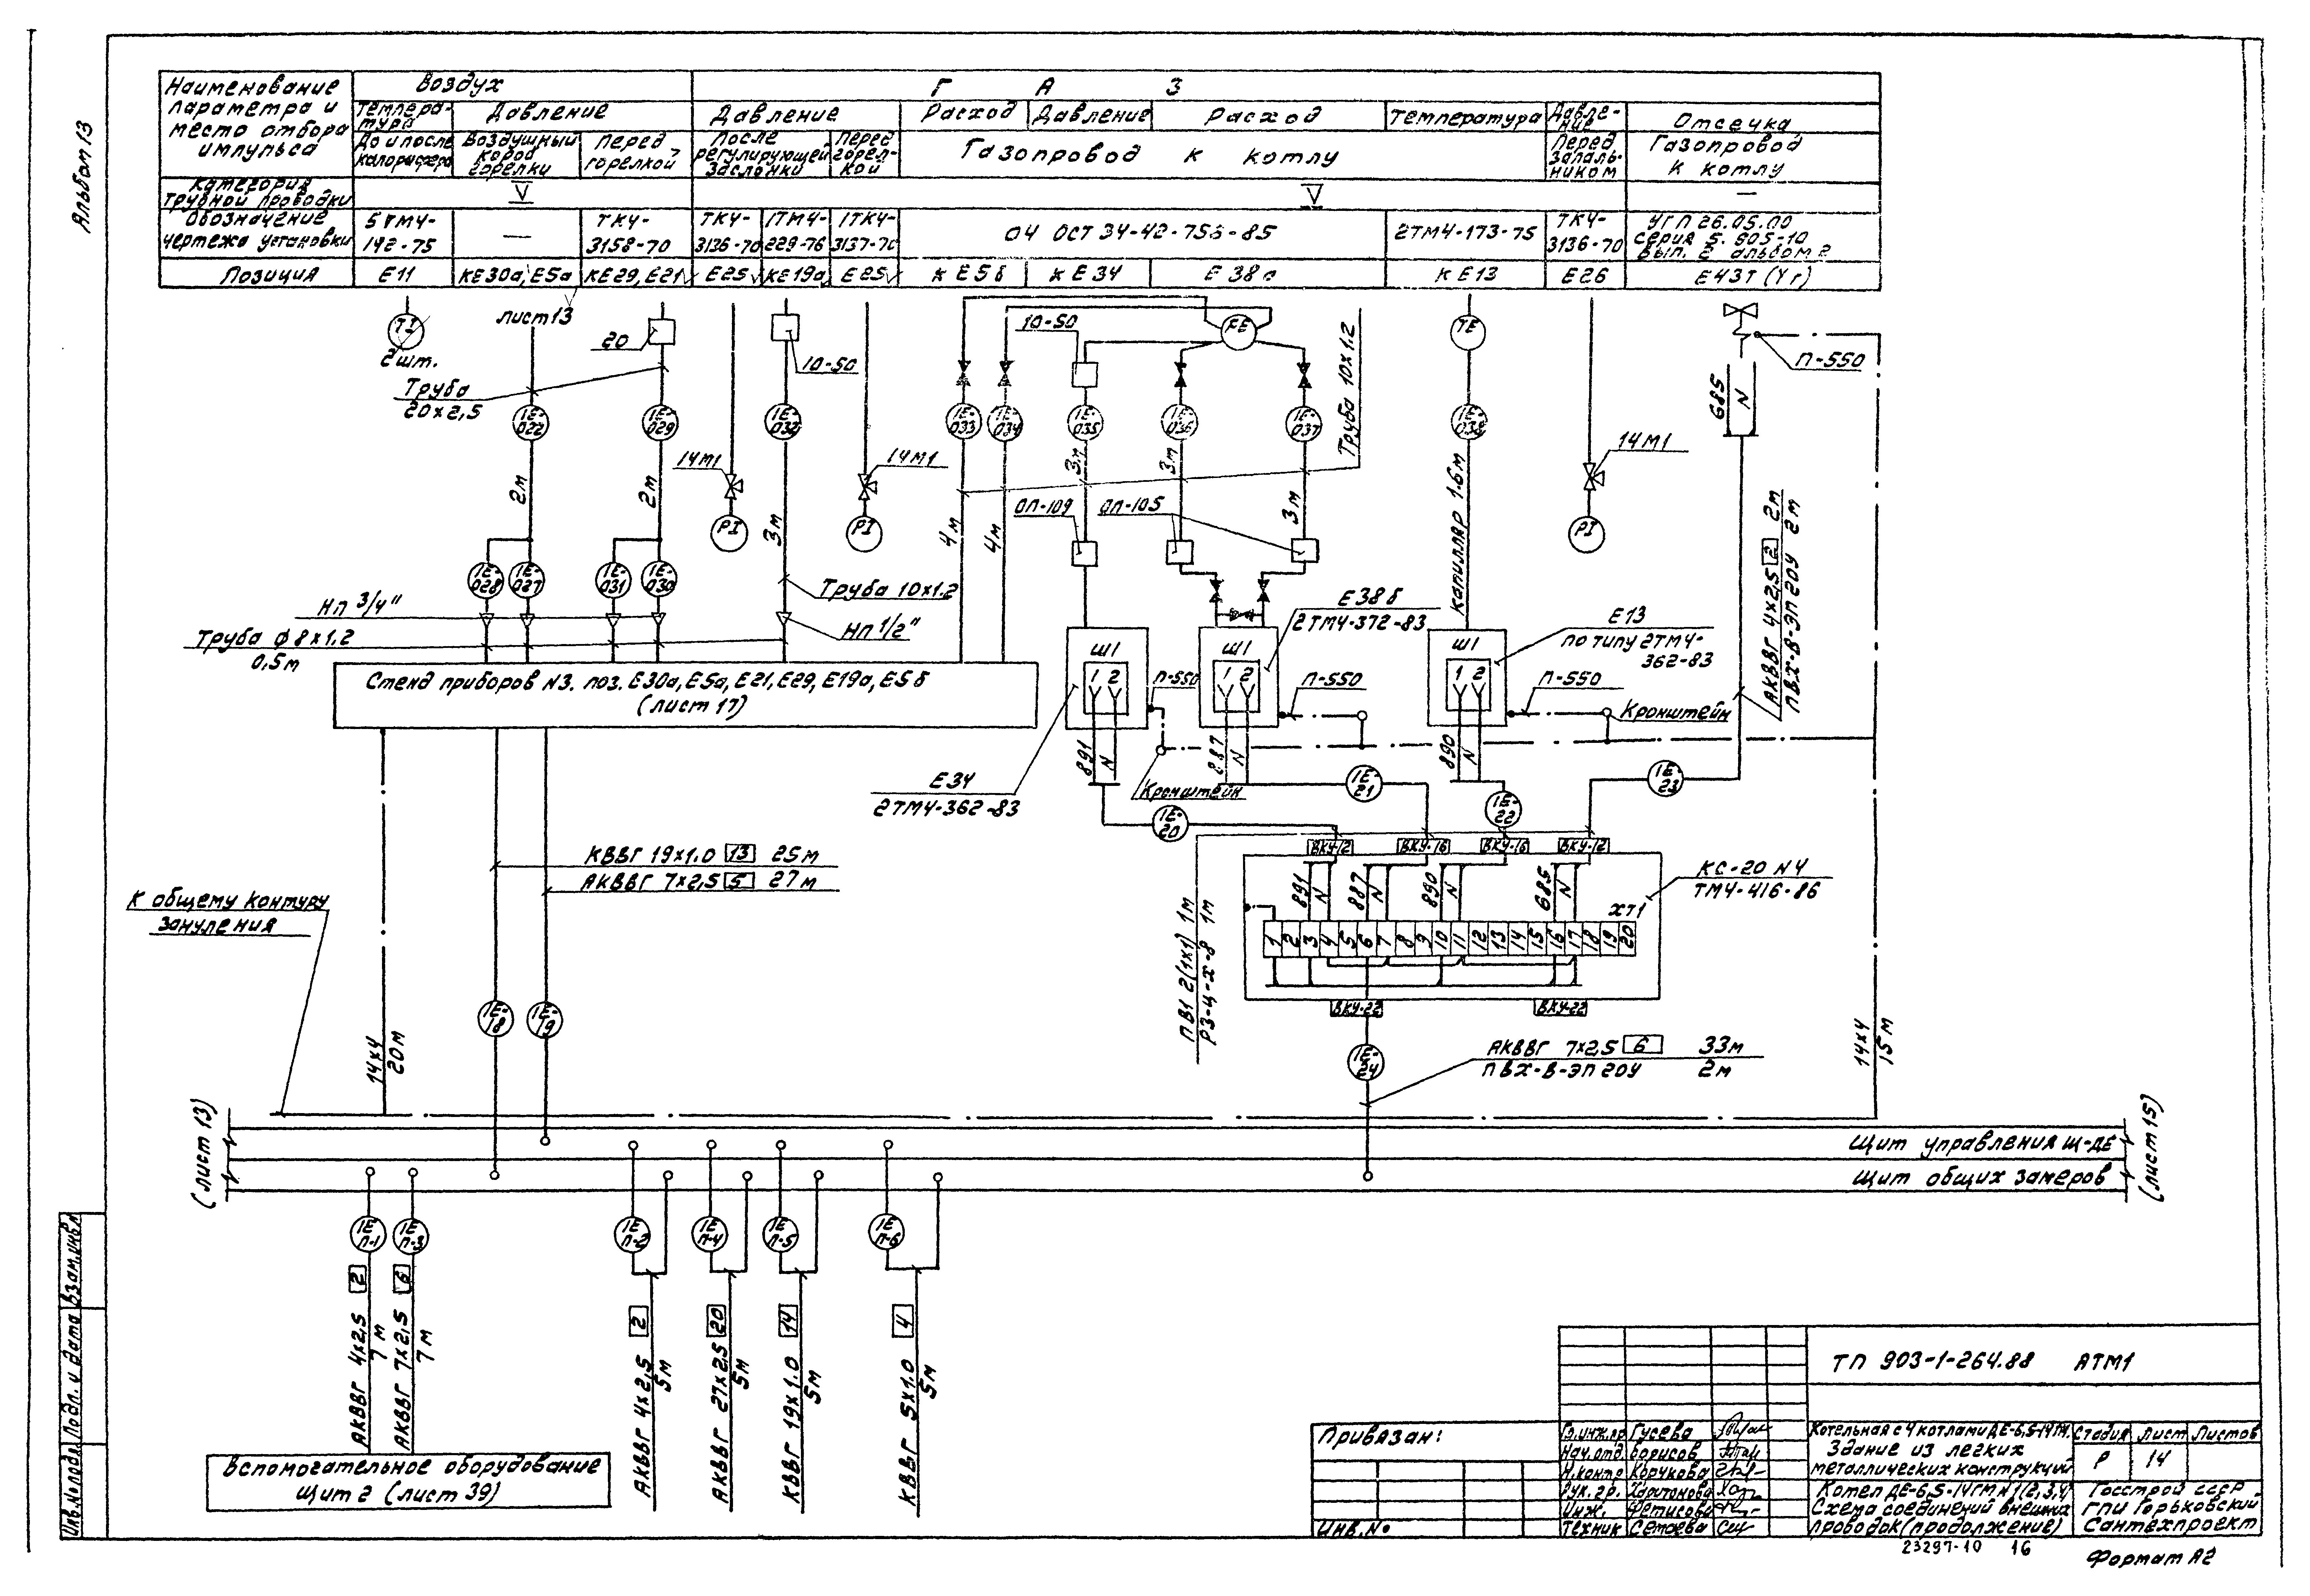 Альбом 13
Наименование
параметра и
место отбора
импульса
Воздух
Г А З
Темпера-
тура
Давление
Давление
Расход
Давление
Расход
Температура
Давле-
ние
Отсечка
До и после
калорифера
Воздушный
короб
горелки
Перед
горелкой
После
регулирующей
заслонки
Перед
горел-
кой
Газопровод к котлу
Перед
запаль-
ником
Газопровод
к котлу
Категория
трубной проводки
V
V
—
Обозначение
чертежа установки
5ТМ4-
142-75
—
ТК4-
3158-70
ТК4-
3136-70
1ТМ4-
229-76
1ТК4-
3137-70
04 ОСТ 34-42-756-85
2ТМ4-173-75
ТК4-
3136-70
УГП 26.05.00
серия 5.905-10
вып. 2 альбом 2
Позиция
Е11
КЕ30а, Е5а
КЕ29, Е21
Е25
КЕ19а
Е25
к Е5б
к Е34
Е38а
к Е13
Е26
Е43Т (Уг)
TI
2шт.
лист 13
20
10-50
10-50
FE
TE
П-550
Труба
20×2,5
1Е-022
1Е-029
1Е-032
1Е-033
1Е-034
1Е-035
1Е-036
1Е-037
1Е-038
Труба 10×1.2
685
N
14М1
14М1
14М1
2м
2м
3м
4м
4м
3м
3м
3м
капилляр 1.6м
PI
PI
PI
ОП-109
ОП-105
АКВВГ 4×2,5 2 2м
ПВХ-В-ЭП20У 2м
1Е-028
1Е-027
1Е-031
1Е-030
Труба 10×1.2
НП 3/4"
НП 1/2"
Труба ф8×1,2
0,5м
Е38б
2ТМ4-372-83
Е13
по типу 2ТМ4-
362-83
Ш1
1 2
Ш1
1 2
Ш1
1 2
Стенд приборов N3. поз. Е30а, Е5а, Е21, Е29, Е19а, Е5б
(лист 17)
П-550
П-550
П-550
Кронштейн
891
N
887
N
890
N
Е34
2ТМ4-362-83
Кронштейн
1Е-20
1Е-21
1Е-22
1Е-23
КВВГ 19×1.0 13 25м
АКВВГ 7×2,5 5 27м
ВКУ-12
ВКУ-16
ВКУ-16
ВКУ-12
КС-20 N4
ТМ4-416-86
891
N
887
N
890
N
685
N
ХТ1
1 2 3 4 5 6 7 8 9 10 11 12 13 14 15 16 17 18 19 20
ВКУ-22
ВКУ-22
ПВ1 2(1×1) 1м
РЗ-Ц-Х-8 1м
К общему контуру
зануления
1Е-18
1Е-19
14×4
20м
1Е-24
АКВВГ 7×2,5 6 33м
ПВХ-В-ЭП20У 2м
14×4
15м
(лист 13)
Щит управления Щ-ДЕ
Щит общих замеров
(лист 15)
1Е П-1
1Е П-3
1Е П-2
1Е П-4
1Е П-5
1Е П-6
АКВВГ 4×2,5 2
7м
АКВВГ 7×2,5 6
7м
АКВВГ 4×2,5 2
5м
АКВВГ 27×2,5 20
5м
КВВГ 19×1.0 14
5м
КВВГ 5×1.0 4
5м
Вспомогательное оборудование
Щит 2 (лист 39)
Взам.инв.N
Подп. и дата
Инв.№ подл.
Привязан:
Инв.№
ТП 903-1-264.88 АТМ1
Гл.инж.пр Гусева
Нач.отд. Борисов
Н.контр Корчкова
Рук.гр. Харитонова
Инж. Фетисова
Техник Сетоева
Котельная с 4 котлами ДЕ-6,5-14ГМ.
Здание из легких
металлических конструкций
Стадия Лист Листов
Р 14
Котел ДЕ-6,5-14ГМ N1(2,3,4)
Схема соединений внешних
проводок (продолжение)
Госстрой СССР
ГПИ Горьковский
Сантехпроект
23297-10 16
Формат А2